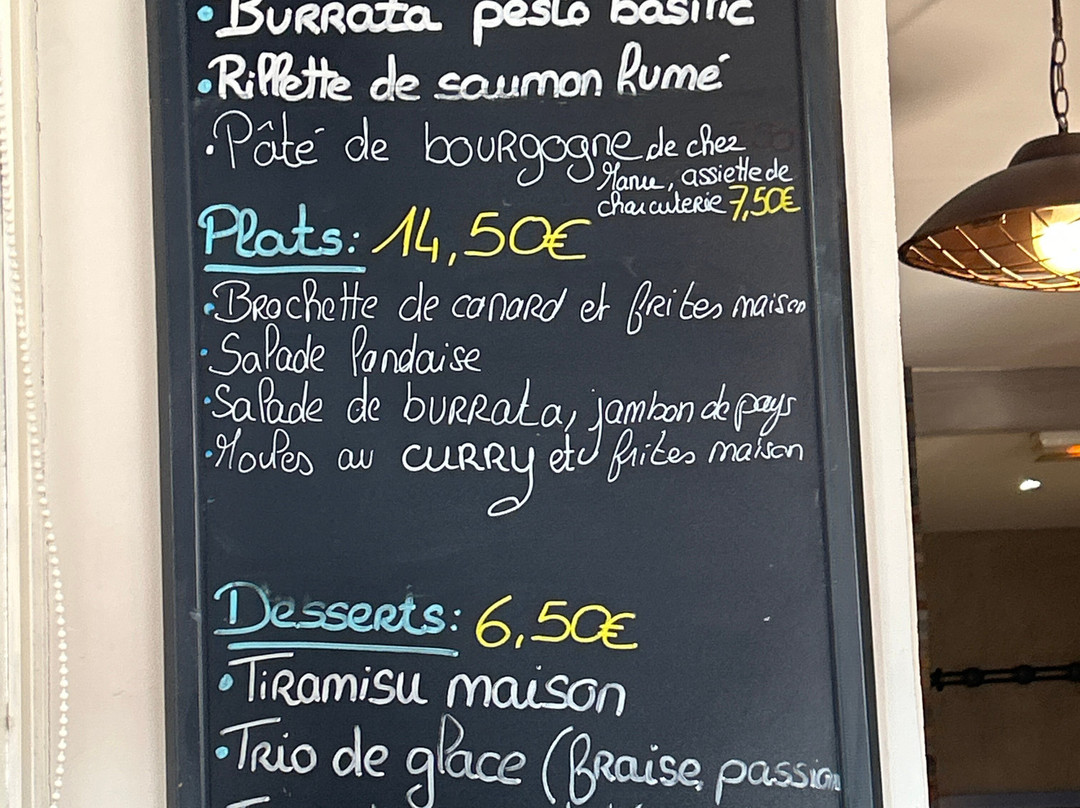 • Burrata pesto basilic
• Rillette de saumon fumé
• Pâté de bourgogne de chez
Manu, assiette de
charcuterie 7,50€
Plats: 14,50€
• Brochette de canard et frites maison
• Salade landaise
• Salade de burrata, jambon de pays
• Moules au curry et frites maison
Desserts: 6,50€
• Tiramisu maison
• Trio de glace (fraise, passion